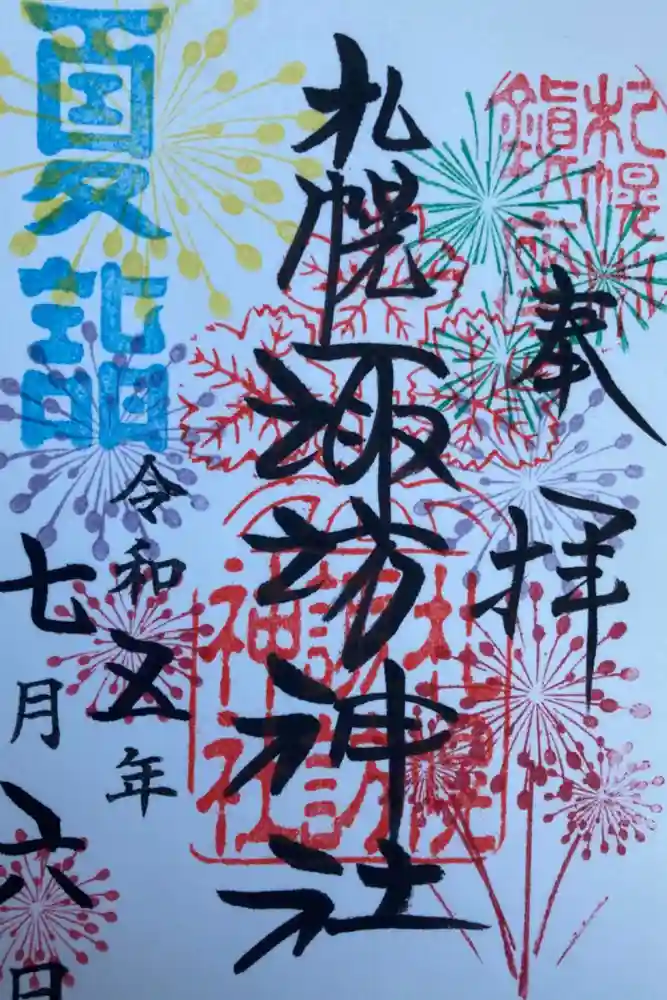 奉拝
札幌諏訪神社
令和五年
七月六日
夏詣
札幌諏訪神社